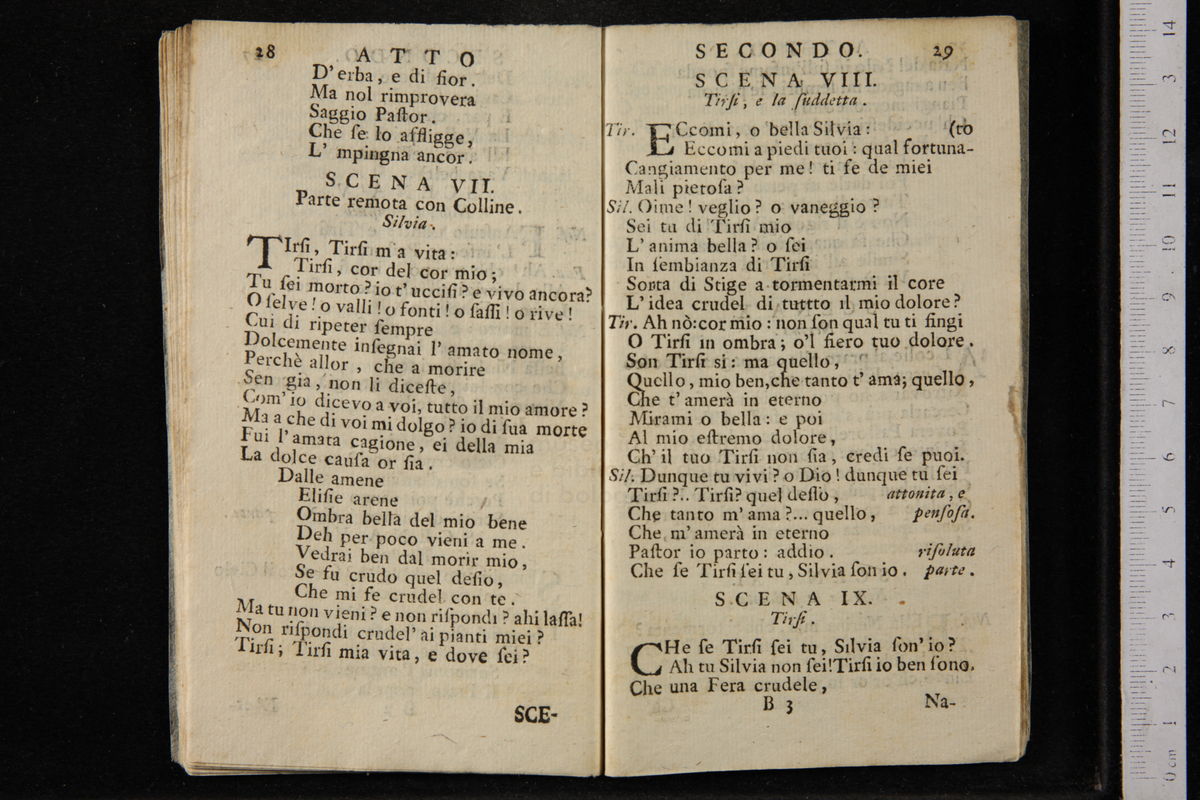 28 ATTO
D'erba, e di fior.
Ma nol rimprovera
Saggio Paſtor.
Che ſe lo affligge,
L' mpingna ancor.
SCENA VII.
Parte remota con Colline.
Silvia.
TIrſi, Tirſi m a vita:
Tirſi, cor del cor mio;
Tu ſei morto? io t'ucciſi? e vivo ancora?
O ſelve! o valli! o fonti! o ſaſſi! o rive!
Cui di ripeter ſempre
Dolcemente inſegnai l'amato nome,
Perchè allor, che a morire
Sen gia, non li diceſte,
Com'io dicevo a voi, tutto il mio amore?
Ma a che di voi mi dolgo? io di ſua morte
Fui l'amata cagione, ei della mia
La dolce cauſa or ſia.
Dalle amene
Eliſie arene
Ombra bella del mio bene
Deh per poco vieni a me.
Vedrai ben dal morir mio,
Se fu crudo quel deſio,
Che mi fe crudel con te.
Ma tu non vieni? e non riſpondi? ahi laſſa!
Non riſpondi crudel' ai pianti miei?
Tirſi; Tirſi mia vita, e dove ſei?
SCE-
SECONDO. 29
SCENA VIII.
Tirſi, e la ſuddetta.
Tir. ECcomi, o bella Silvia: (to
Eccomi a piedi tuoi: qual fortuna-
Cangiamento per me! ti fe de miei
Mali pietoſa?
Sil. Oime! veglio? o vaneggio?
Sei tu di Tirſi mio
L'anima bella? o ſei
In ſembianza di Tirſi
Sorta di Stige a tormentarmi il core
L'idea crudel di tuttto il mio dolore?
Tir. Ah nò: cor mio: non ſon qual tu ti fingi
O Tirſi in ombra; o'l fiero tuo dolore.
Son Tirſi si: ma quello,
Quello, mio ben, che tanto t'ama; quello,
Che t'amerà in eterno
Mirami o bella: e poi
Al mio eſtremo dolore,
Ch'il tuo Tirſi non ſia, credi ſe puoi.
Sil. Dunque tu vivi? o Dio! dunque tu ſei
Tirſi?.. Tirſi? quel deſſo, attonita, e
Che tanto m'ama?... quello, penſoſa.
Che m'amerà in eterno
Paſtor io parto: addio. riſoluta
Che ſe Tirſi ſei tu, Silvia ſon io. parte.
SCENA IX.
Tirſi.
CHe ſe Tirſi ſei tu, Silvia ſon'io?
Ah tu Silvia non ſei! Tirſi io ben ſono.
Che una Fera crudele,
B 3 Na-
0 cm 1 2 3 4 5 6 7 8 9 10 11 12 13 14